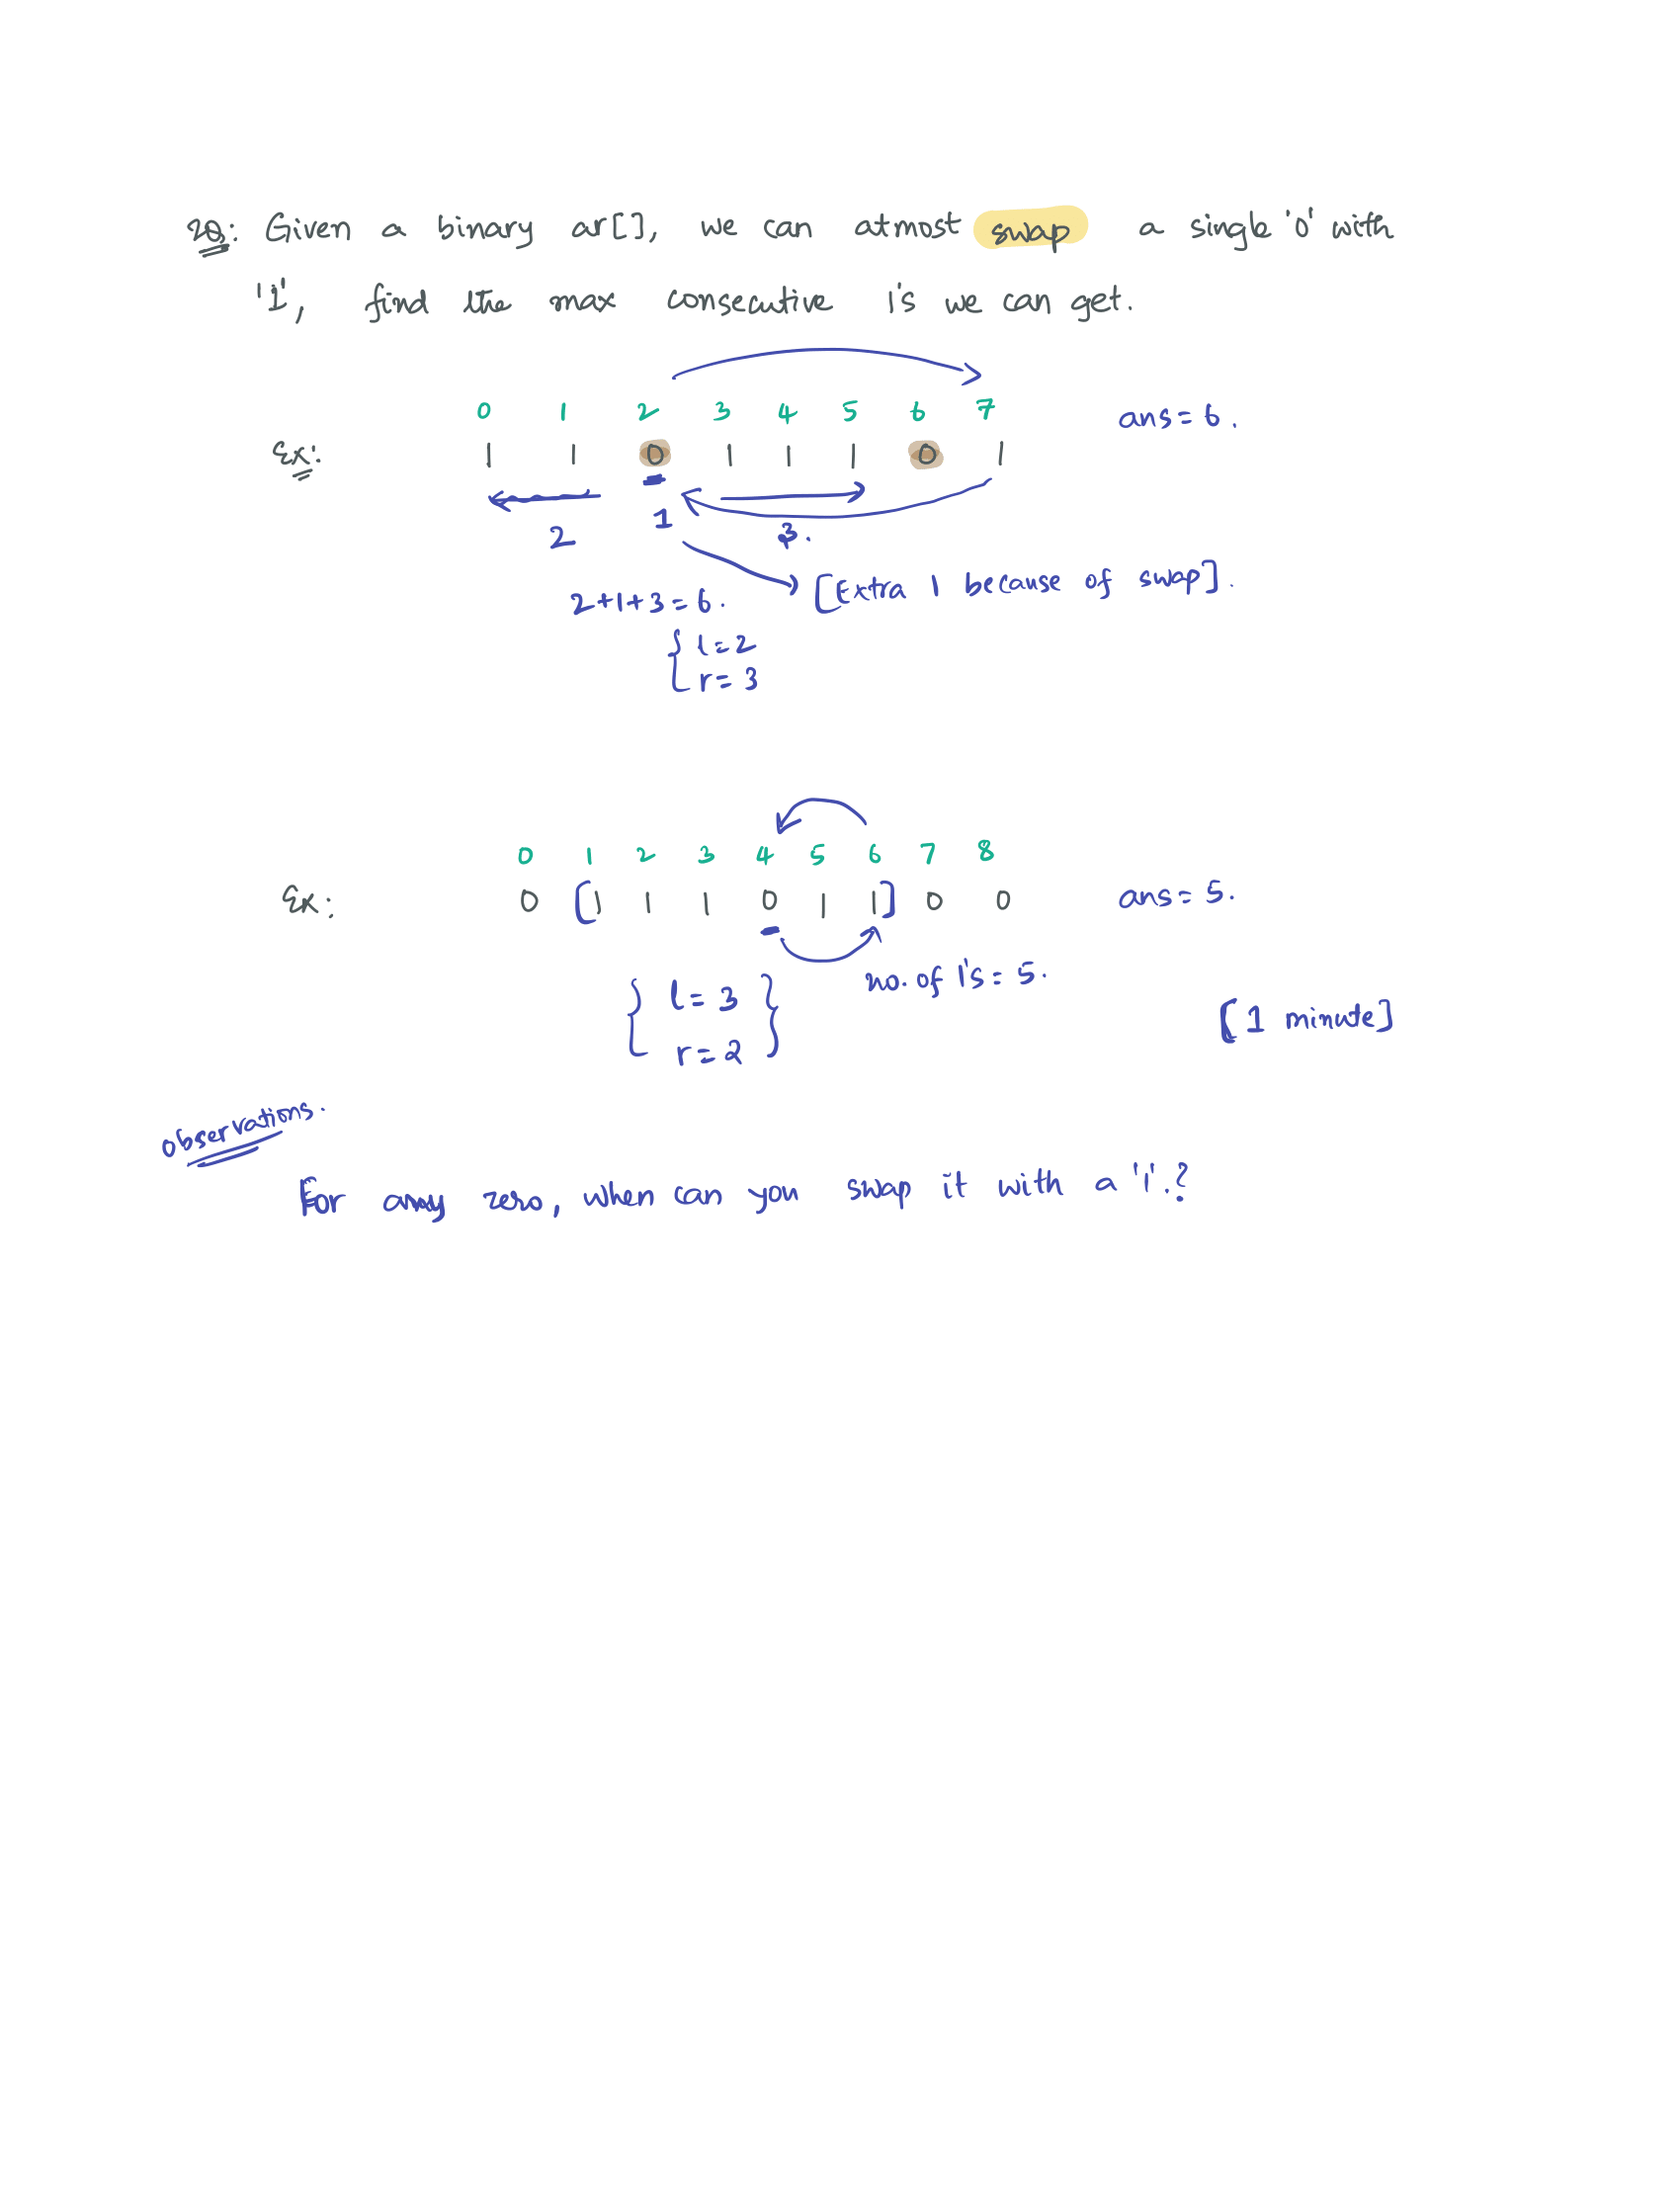 2Q: Given a binary ar[], we can atmost swap a single '0' with
'1', find the max consecutive 1's we can get.
0 1 2 3 4 5 6 7
ans = 6.
Ex: 1 1 0 1 1 1 0 1
2 1 3.
[Extra 1 because of swap].
2+1+3=6.
{ l=2
r=3
0 1 2 3 4 5 6 7 8
Ex: 0 [1 1 1 0 1 1] 0 0
ans = 5.
no. of 1's = 5.
{ l=3 }
r=2
[1 minute]
observations.
For any zero, when can you swap it with a '1'.?